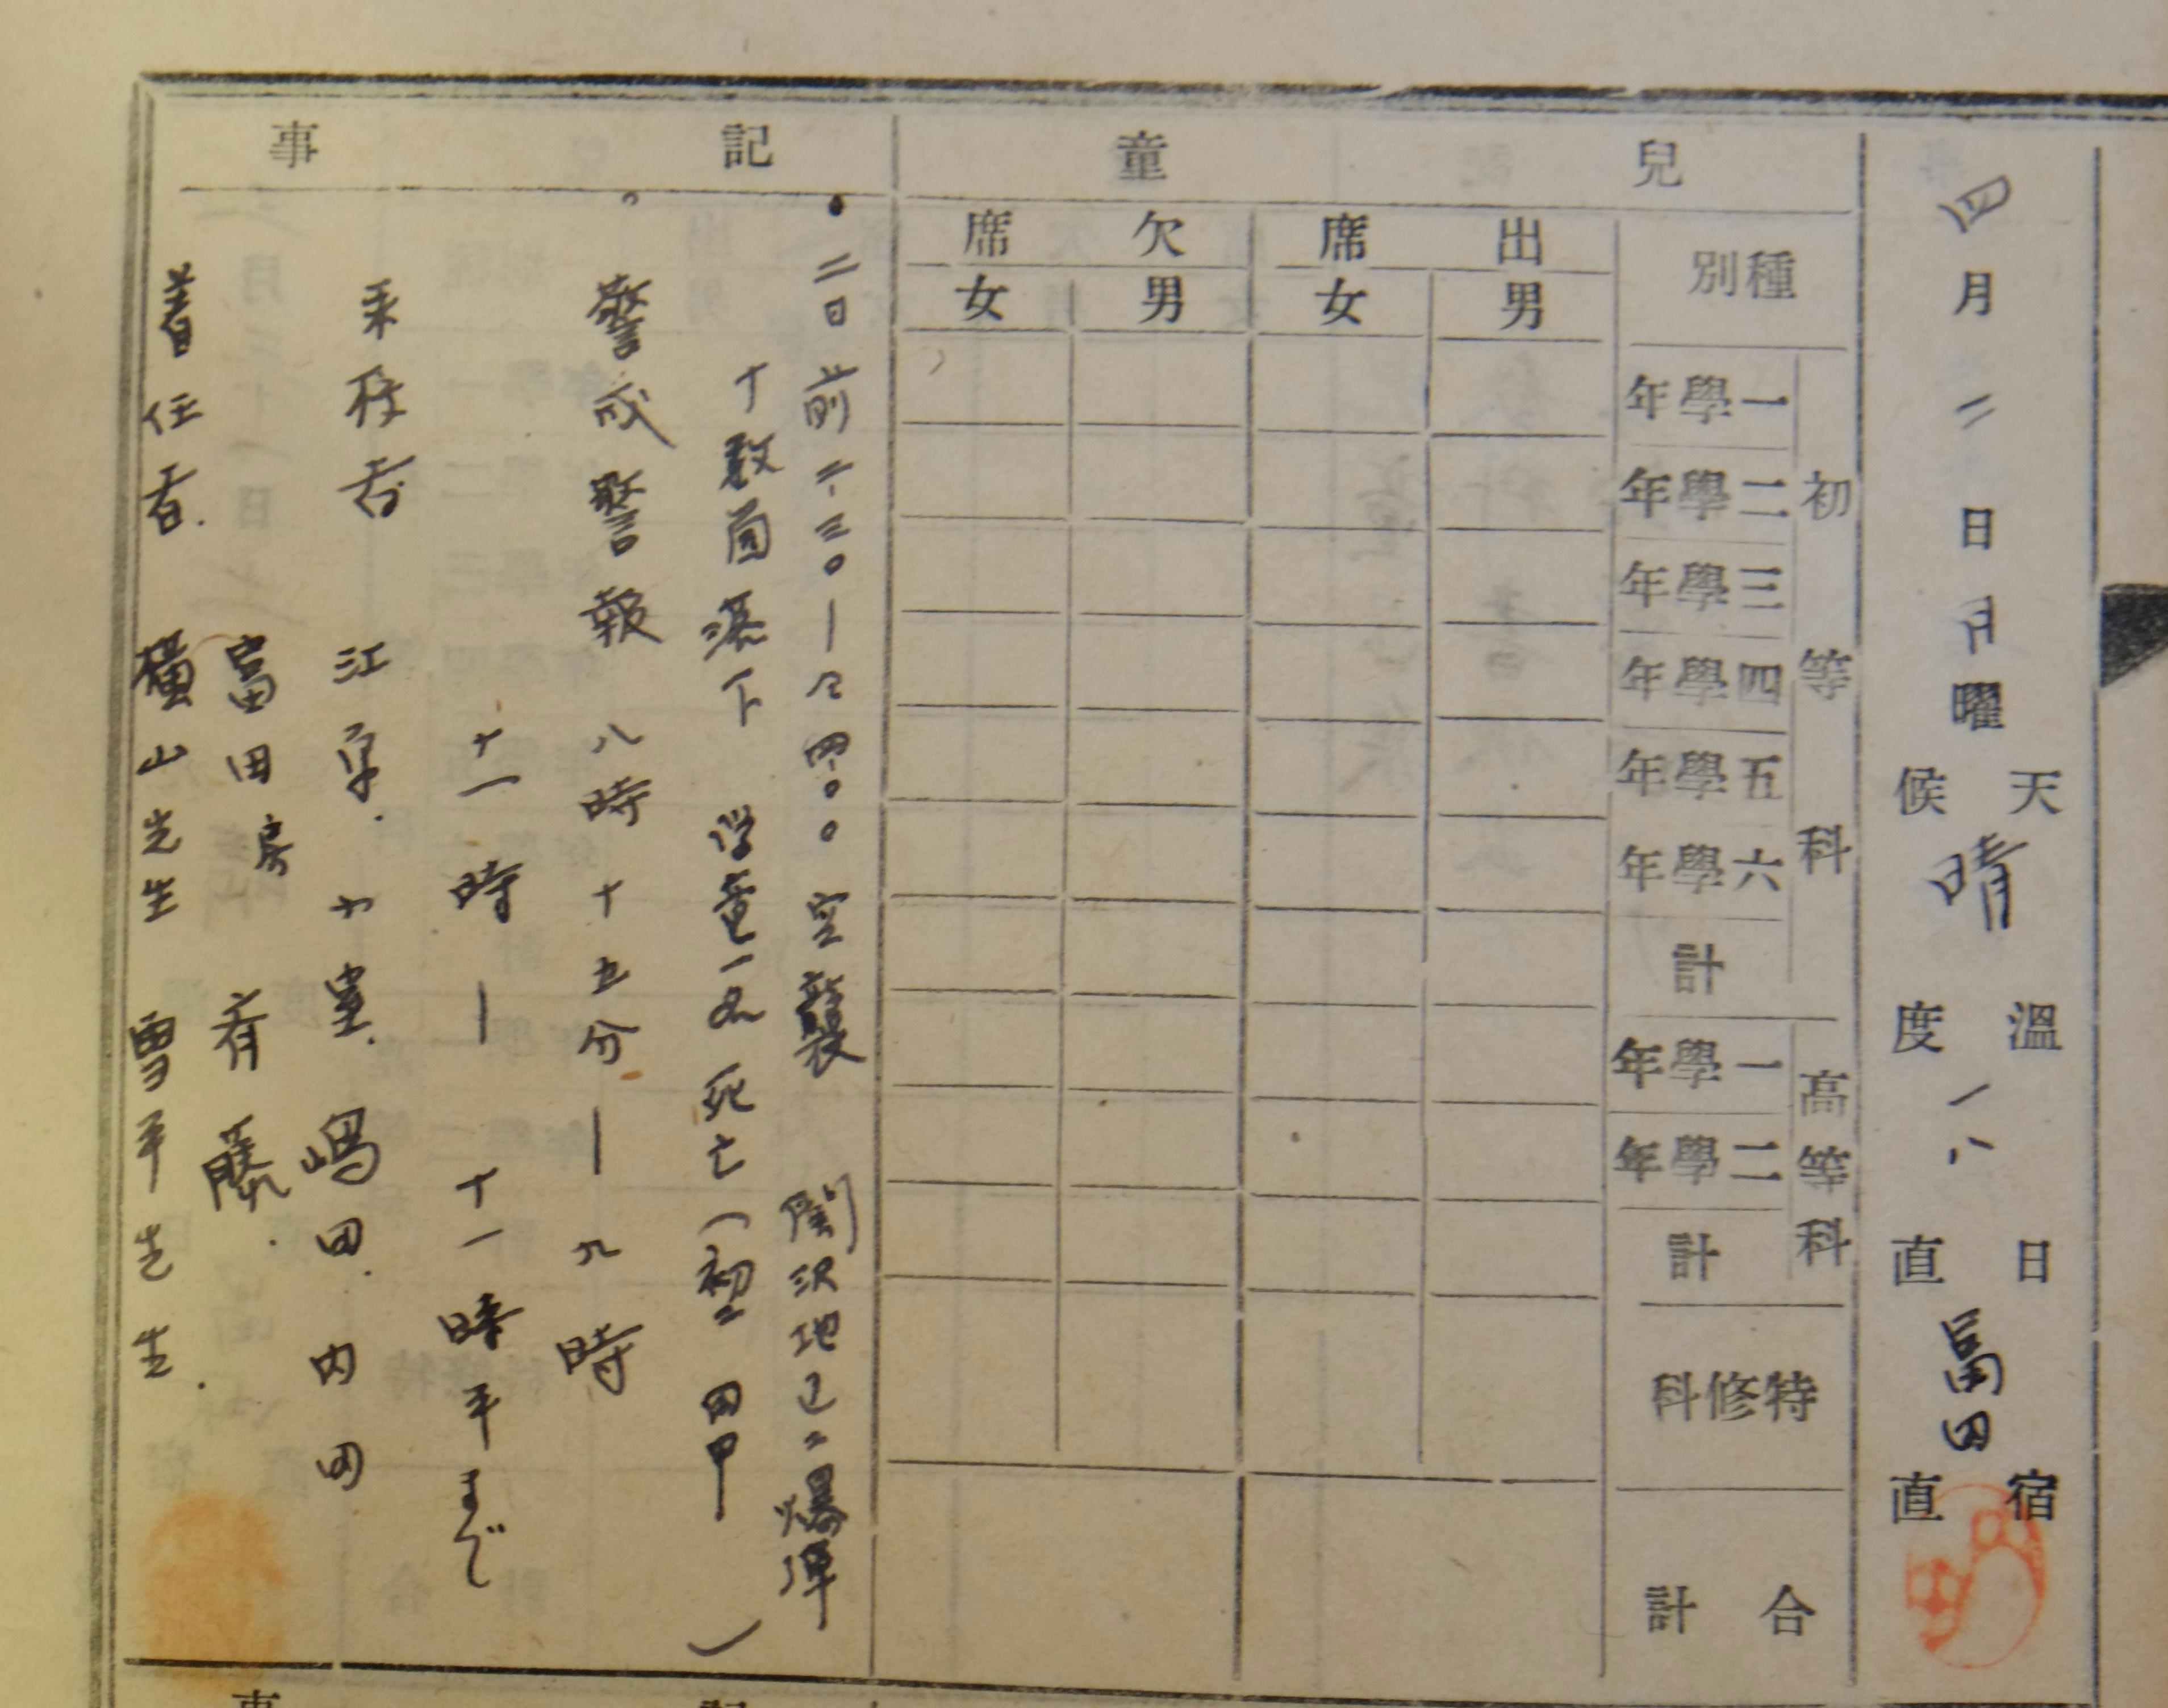 四月二日 月曜
天候 晴
溫度 一八
日直 富田
宿直
兒童
種別
出席
男
女
欠席
男
女
初等科
一學年
二學年
三學年
四學年
五學年
六學年
計
高等科
一學年
二學年
計
特修科
合計
記事
・二日前二・三〇―〃四・〇〇 空襲 関沢地区ニ爆弾
十数箇落下 学童一名死亡(初二 田甲)
。警戒警報 八時十五分―九時
十一時―十一時半まで
来校者 江京. 嶋田. 内田
富田房 斉勝.
着任者. 横山先生 雪平先生.
記事